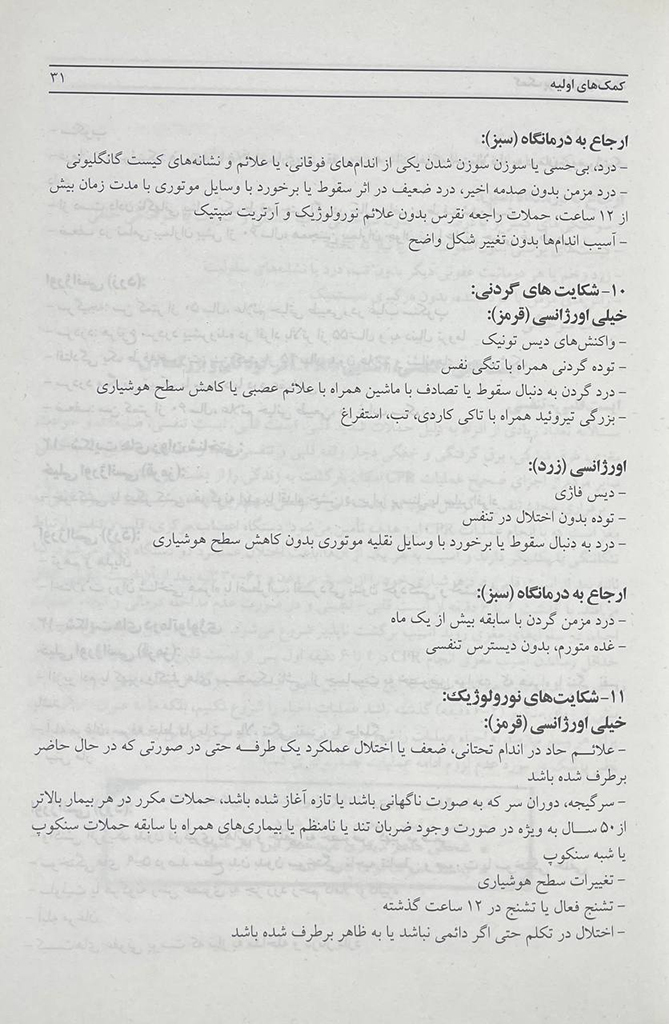 کمک‌های اولیه
۳۱
ارجاع به درمانگاه (سبز):
- درد، بی‌حسی یا سوزن سوزن شدن یکی از اندام‌های فوقانی، یا علائم و نشانه‌های کیست گانگلیونی
- درد مزمن بدون صدمه اخیر، درد ضعیف در اثر سقوط یا برخورد با وسایل موتوری با مدت زمان بیش
از ۱۲ ساعت، حملات راجعه نقرس بدون علائم نورولوژیک و آرتریت سپتیک
- آسیب اندام‌ها بدون تغییر شکل واضح
۱۰- شکایت های گردنی:
خیلی اورژانسی (قرمز):
- واکنش‌های دیس تونیک
- توده گردنی همراه با تنگی نفس
- درد گردن به دنبال سقوط یا تصادف با ماشین همراه با علائم عصبی یا کاهش سطح هوشیاری
- بزرگی تیروئید همراه با تاکی کاردی، تب، استفراغ
اورژانسی (زرد):
- دیس فاژی
- توده بدون اختلال در تنفس
- درد به دنبال سقوط یا برخورد با وسایل نقلیه موتوری بدون کاهش سطح هوشیاری
ارجاع به درمانگاه (سبز):
- درد مزمن گردن با سابقه بیش از یک ماه
- غده متورم، بدون دیسترس تنفسی
۱۱- شکایت‌های نورولوژیک:
خیلی اورژانسی (قرمز):
- علائـــم حاد در اندام تحتانی، ضعف یا اختلال عملکرد یک طرفه حتی در صورتی که در حال حاضر
برطرف شده باشد
- سرگیجه، دوران سر که به صورت ناگهانی باشد یا تازه آغاز شده باشد، حملات مکرر در هر بیمار بالاتر
از ۵۰ ســال به ویژه در صورت وجود ضربان تند یا نامنظم یا بیماری‌های همراه با سابقه حملات سنکوپ
یا شبه سنکوپ
- تغییرات سطح هوشیاری
- تشنج فعال یا تشنج در ۱۲ ساعت گذشته
- اختلال در تکلم حتی اگر دائمی نباشد یا به ظاهر برطرف شده باشد